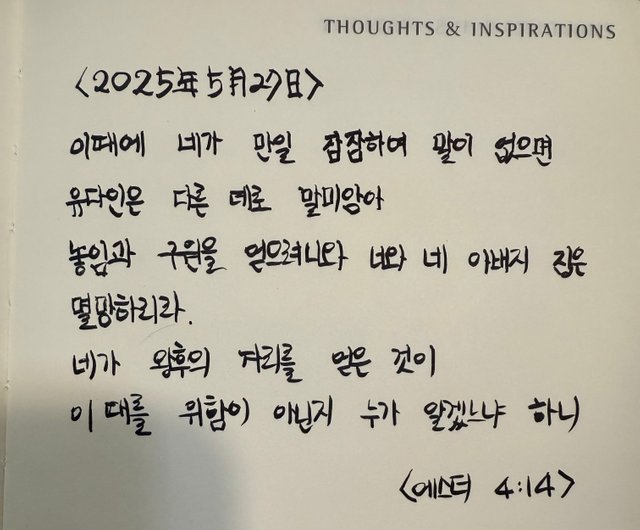 THOUGHTS & INSPIRATIONS
<2025年5月27日>
이때에 네가 만일 잠잠하여 말이 없으면
유다인은 다른 데로 말미암아
놓임과 구원을 얻으려니와 너와 네 아배지 집은
멸망하리라.
네가 왕후의 자리를 얻은 것이
이 때를 위함이 아닌지 누가 알겠느냐 하니
<에스더 4:14>